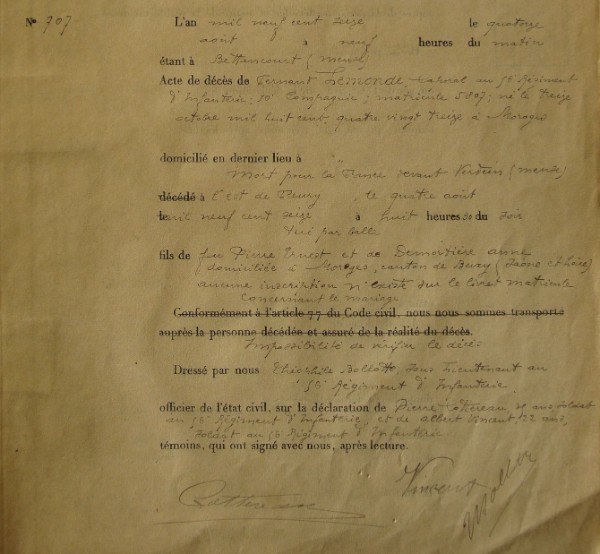 N° 707
L'an mil neuf cent seize le quatorze
août à neuf heures du matin
étant à Bettancourt (meuse)
Acte de décès de Fernant Lemonde, caporal au Régiment
d'Infanterie; 10e Compagnie; matricule 5807; né le treize
octobre mil huit cent, quatre vingt treize à Moroges
domicilié en dernier lieu à "
Mort pour la France devant Verdun (meuse)
décédé à l'est de Fleury, le quatre août
le mil neuf cent seize à huit heures 30 du soir
Tué par balle
fils de feu Pierre Ernest et de Demortière anne
domiciliée à Moroges, canton de Buxy (Saône et Loire)
aucune inscription n'existe sur le livret matricule
concernant le mariage
Conformément à l'article 77 du Code civil, nous nous sommes transporté
auprès la personne décédée et assuré de la réalité du décès.
Impossibilité de vérifier le décès
Dressé par nous Théophile sous lieutenant au
Régiment d'Infanterie
officier de l'état civil, sur la déclaration de Pierre ans, soldat
au Régiment d'Infanterie, et de albert Vincent, 22 ans,
soldat au Régiment d'Infanterie
témoins, qui ont signé avec nous, après lecture.
Vincent